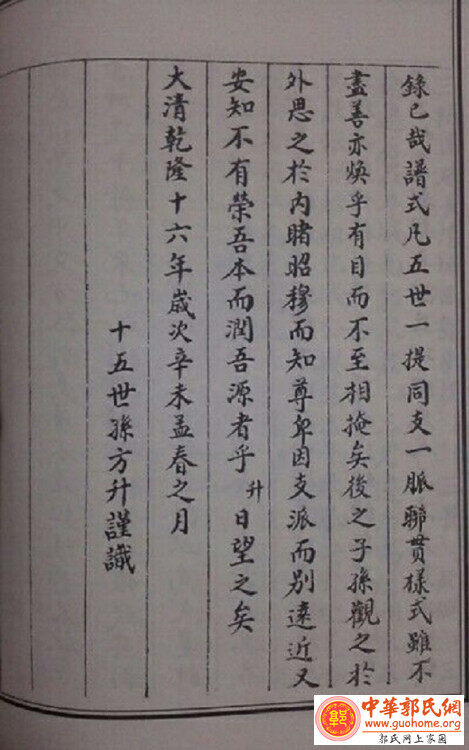 錄已哉譜式凡五世一提同支一脈聯貫樣式雖不
盡善亦煥乎有目而不至相掩矣後之子孫觀之於
外思之於內睹昭穆而知尊卑因支派而別遠近又
安知不有榮吾本而潤吾源者乎升日望之矣
大清乾隆十六年歲次辛未孟春之月
十五世孫方升謹識
中華郭氏網
www.guohome.org
郭氏网上家園